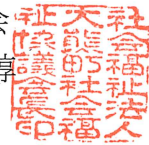 会
淳
社会福祉法人
大熊町社会福
祉協議会長印